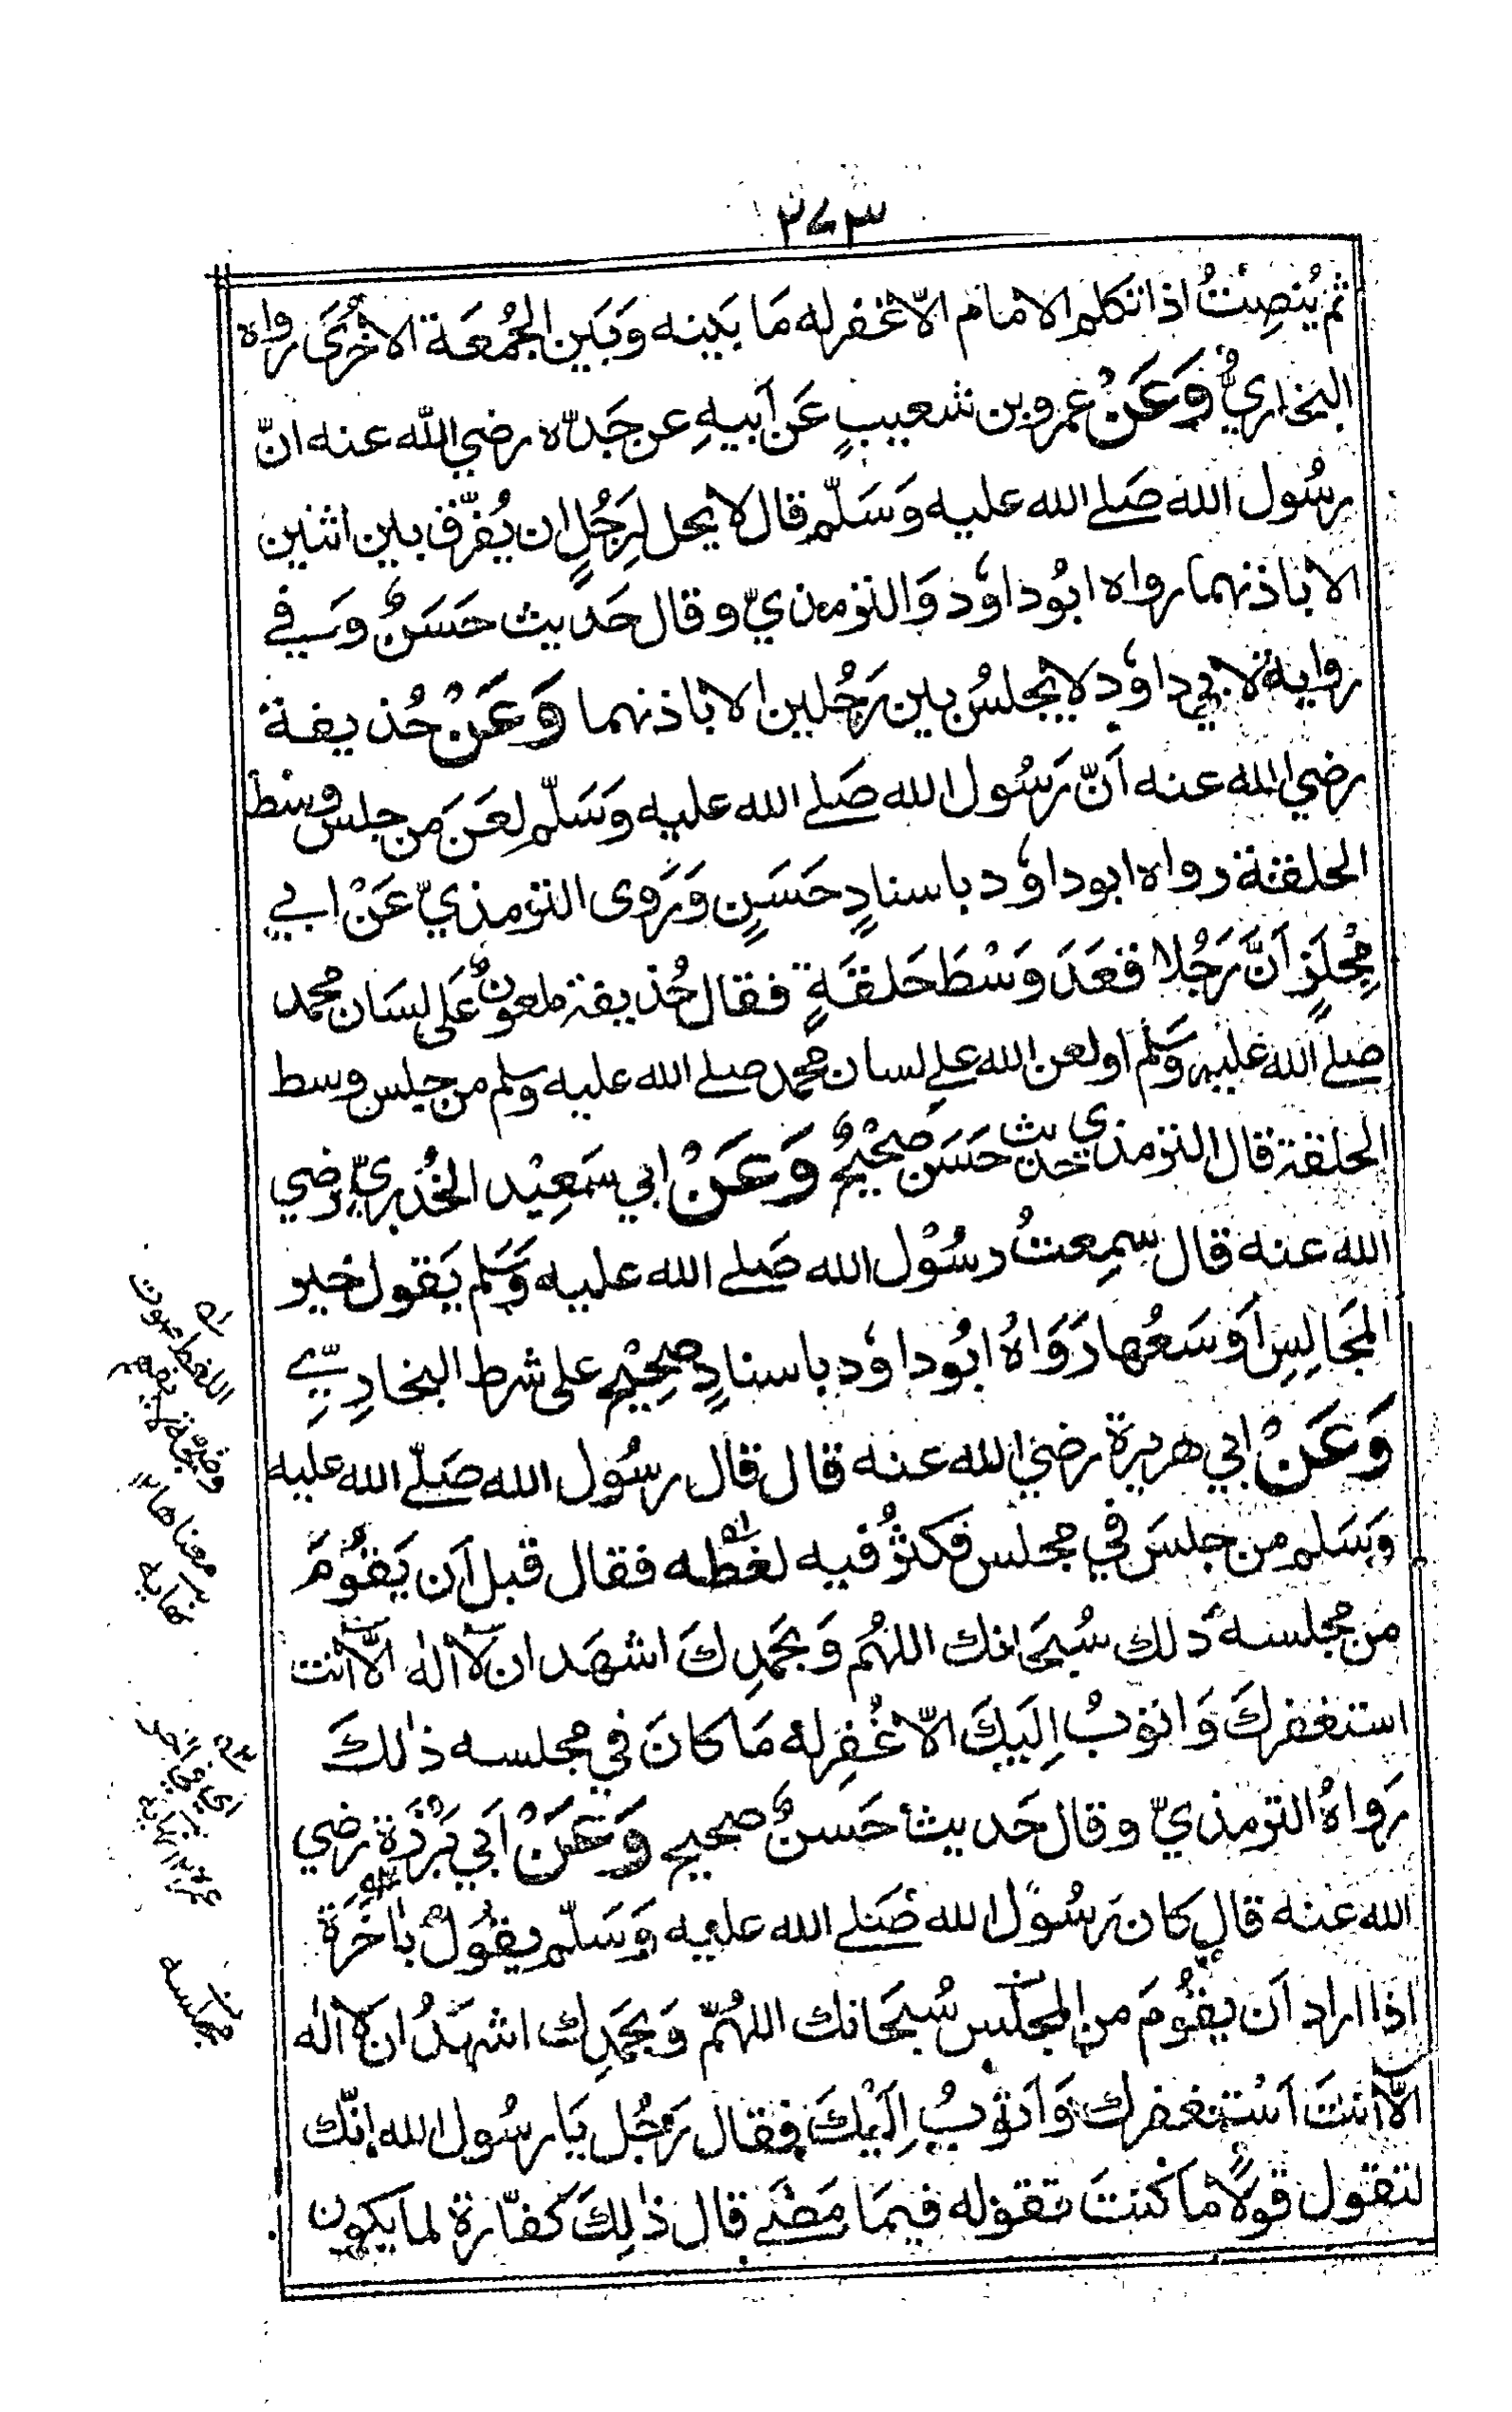 ٢٧٣
ثم يُنصِتُ اذا تكلم الامام الّا غفر له مَا بَينه وَبَين الجُمعَة الاُخرَى رواه
البخاريُّ وَعَنْ عَمرو بن شعيبٍ عَن اَبيهِ عن جَدّه رضي الله عنه انّ
رسُول الله صَلے الله عليه وَسَلّم قال لا يحل لِرَجُلٍ ان يُفرّق بين اثنين
الا باذنهما رواه ابُوداوٗد وَالترمذيّ وقال حَديث حَسَنٌ وَفے
رواية لابي داوٗد لا يجلسُ بين رَجُلين الا باذنهما وَعَنْ حُذيفة
رضي الله عنه اَنّ رَسُول الله صَلے الله عليه وَسَلّم لعَنَ مَن جلس وسَط
الحلقة رواه ابوداوٗد باسنادٍ حَسَنٍ وَرَوى الترمذيّ عَنْ ابي
مِجْلَزٍ اَنَّ رَجُلا قعَدَ وَسْطَ حَلقَةٍ فقال حُذيفة ملعونٌ عَلى لسَان محمد
صلے الله عليه وَسَلم او لعن الله علے لسان محمد صلے الله عليه وسلم من جلس وسط
الحلقة قال الترمذي حديث حَسَن صَحْيحٌ وَعَنْ ابي سَعِيْد الخُدريّ رضي
الله عنه قال سمِعتُ رسُوْل الله صَلے الله عليه وَسَلم يَقول خير
المَجَالِسِ اَوسَعُها رَوَاهُ ابُوداوٗد باسنادٍ صحِيْحٍ على شرط البخارِيّ
وَعَنْ ابي هريرة رضي الله عنه قال قال رسُول الله صَلّے الله عليه
وَسَلم من جلسَ في مجلس فكثرُ فيه لغَطه فقال قبل اَن يَقوُمَ
من مجلسه ذلك سُبحَانك اللهُم وَبحَمدِكَ اشهَد ان لا الٰه الّا انت
استغفركَ وَاتوبُ اِلَيكَ الّا غُفِر له مَا كانَ في مجلسه ذٰلكَ
رَواهُ الترمذيّ وقال حَديث حَسنٌ صحيح وَعَنْ اَبي بَرْزَة رضي
الله عنه قال كان رسُوْل الله صَلے الله عليه وَسَلّم يقُولُ باَخَرَة
اذا اراد اَن يقُومَ من المجلس سُبحَانك اللهُمّ وَبحَمدِك اشهَدُ ان لا الٰه
الّا انتَ اَسْتغفرك وَاَتوبُ اِلَيْكَ فقال رَجُل يَا رسُول الله اِنّك
لتقول قولًا مَا كنتَ تقوله فيمَا مَضےٰ قال ذٰلِكَ كفّارة لما يكون
اللغط صوت
وضجّة لا يفهم
معناها
نهايه
اي في اٰخر
مجلسه